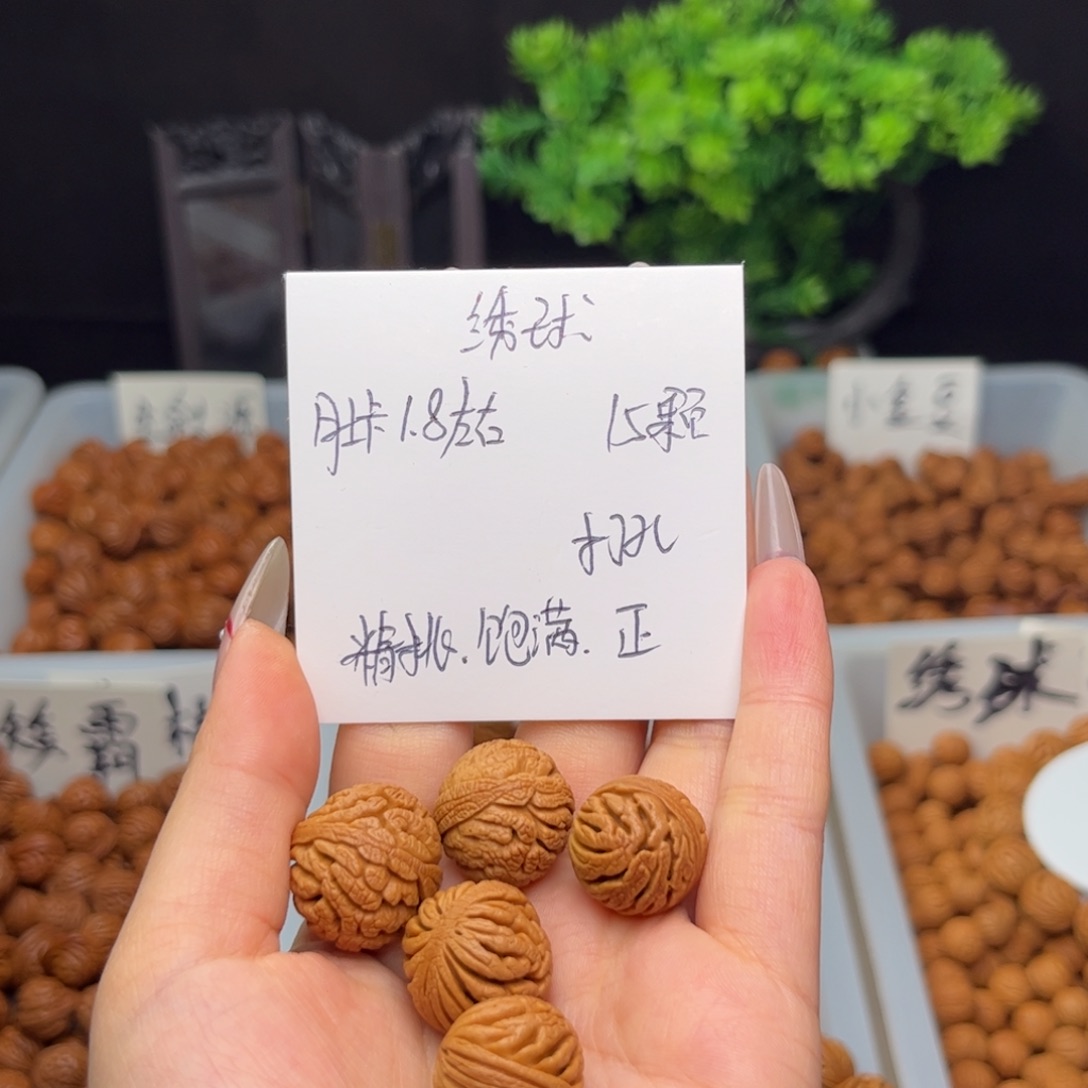 绣球
肚卡1.8左右 15颗
打孔
精挑.饱满.正
小金豆
绣球